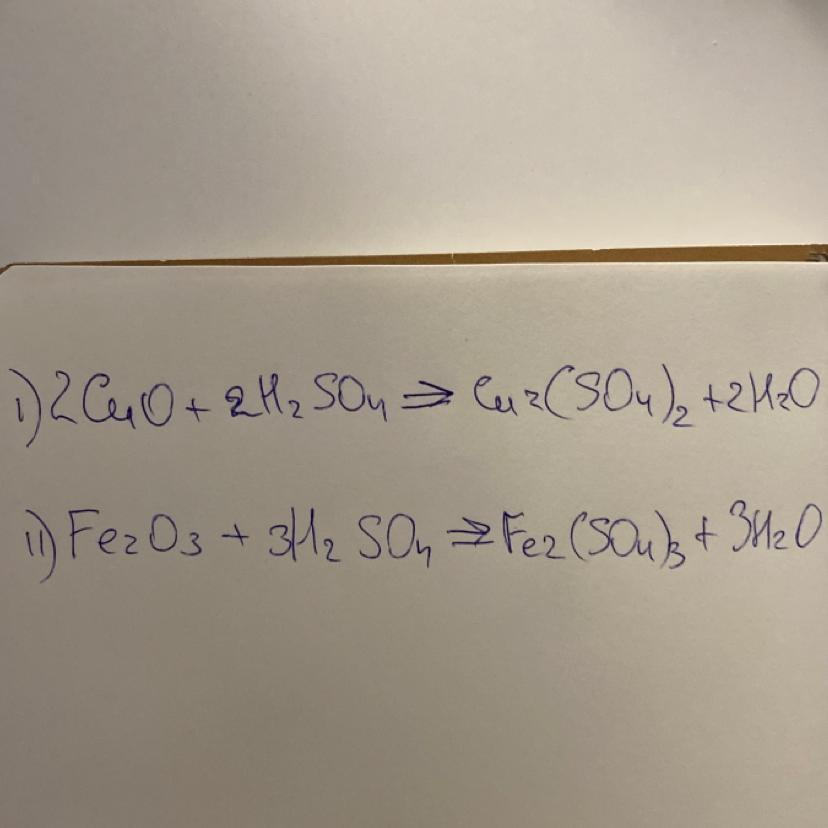 i) 2CuO + 2H₂SO₄ ⇒ Cu₂(SO₄)₂ + 2H₂O
ii) Fe₂O₃ + 3H₂SO₄ ⇒ Fe₂(SO₄)₃ + 3H₂O